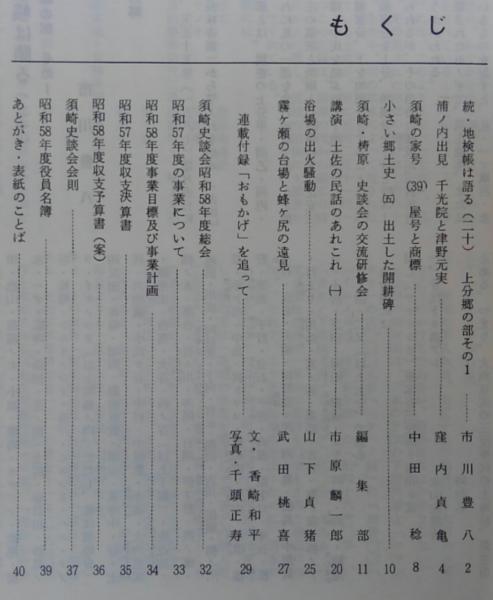 もくじ
続・地検帳は語る(二十) 上分郷の部その1 ……… 市川豊八 2
浦ノ内出見 千光院と津野元実 ……… 窪内貞亀 4
須崎の家号(39) 屋号と商標 ……… 中田稔 8
小さい郷土史 ㈤ 出土した開耕碑 ……… 10
須崎・梼原 史談会の交流研修会 ……… 編集部 11
講演 土佐の民話のあれこれ ㈠ ……… 市原麟一郎 20
浴場の出火騒動 ……… 山下貞猪 25
霧ヶ瀬の台場と蜂ヶ尻の遠見 ……… 武田桃喜 27
連載付録「おもかげ」を追って ……… 文・香崎和平 写真・千頭正寿 29
須崎史談会昭和58年度総会 ……… 32
昭和57年度の事業について ……… 33
昭和58年度事業目標及び事業計画 ……… 34
昭和57年度収支決算書 ……… 35
昭和58年度収支予算書(案) ……… 36
須崎史談会会則 ……… 37
昭和58年度役員名簿 ……… 39
あとがき・表紙のことば ……… 40